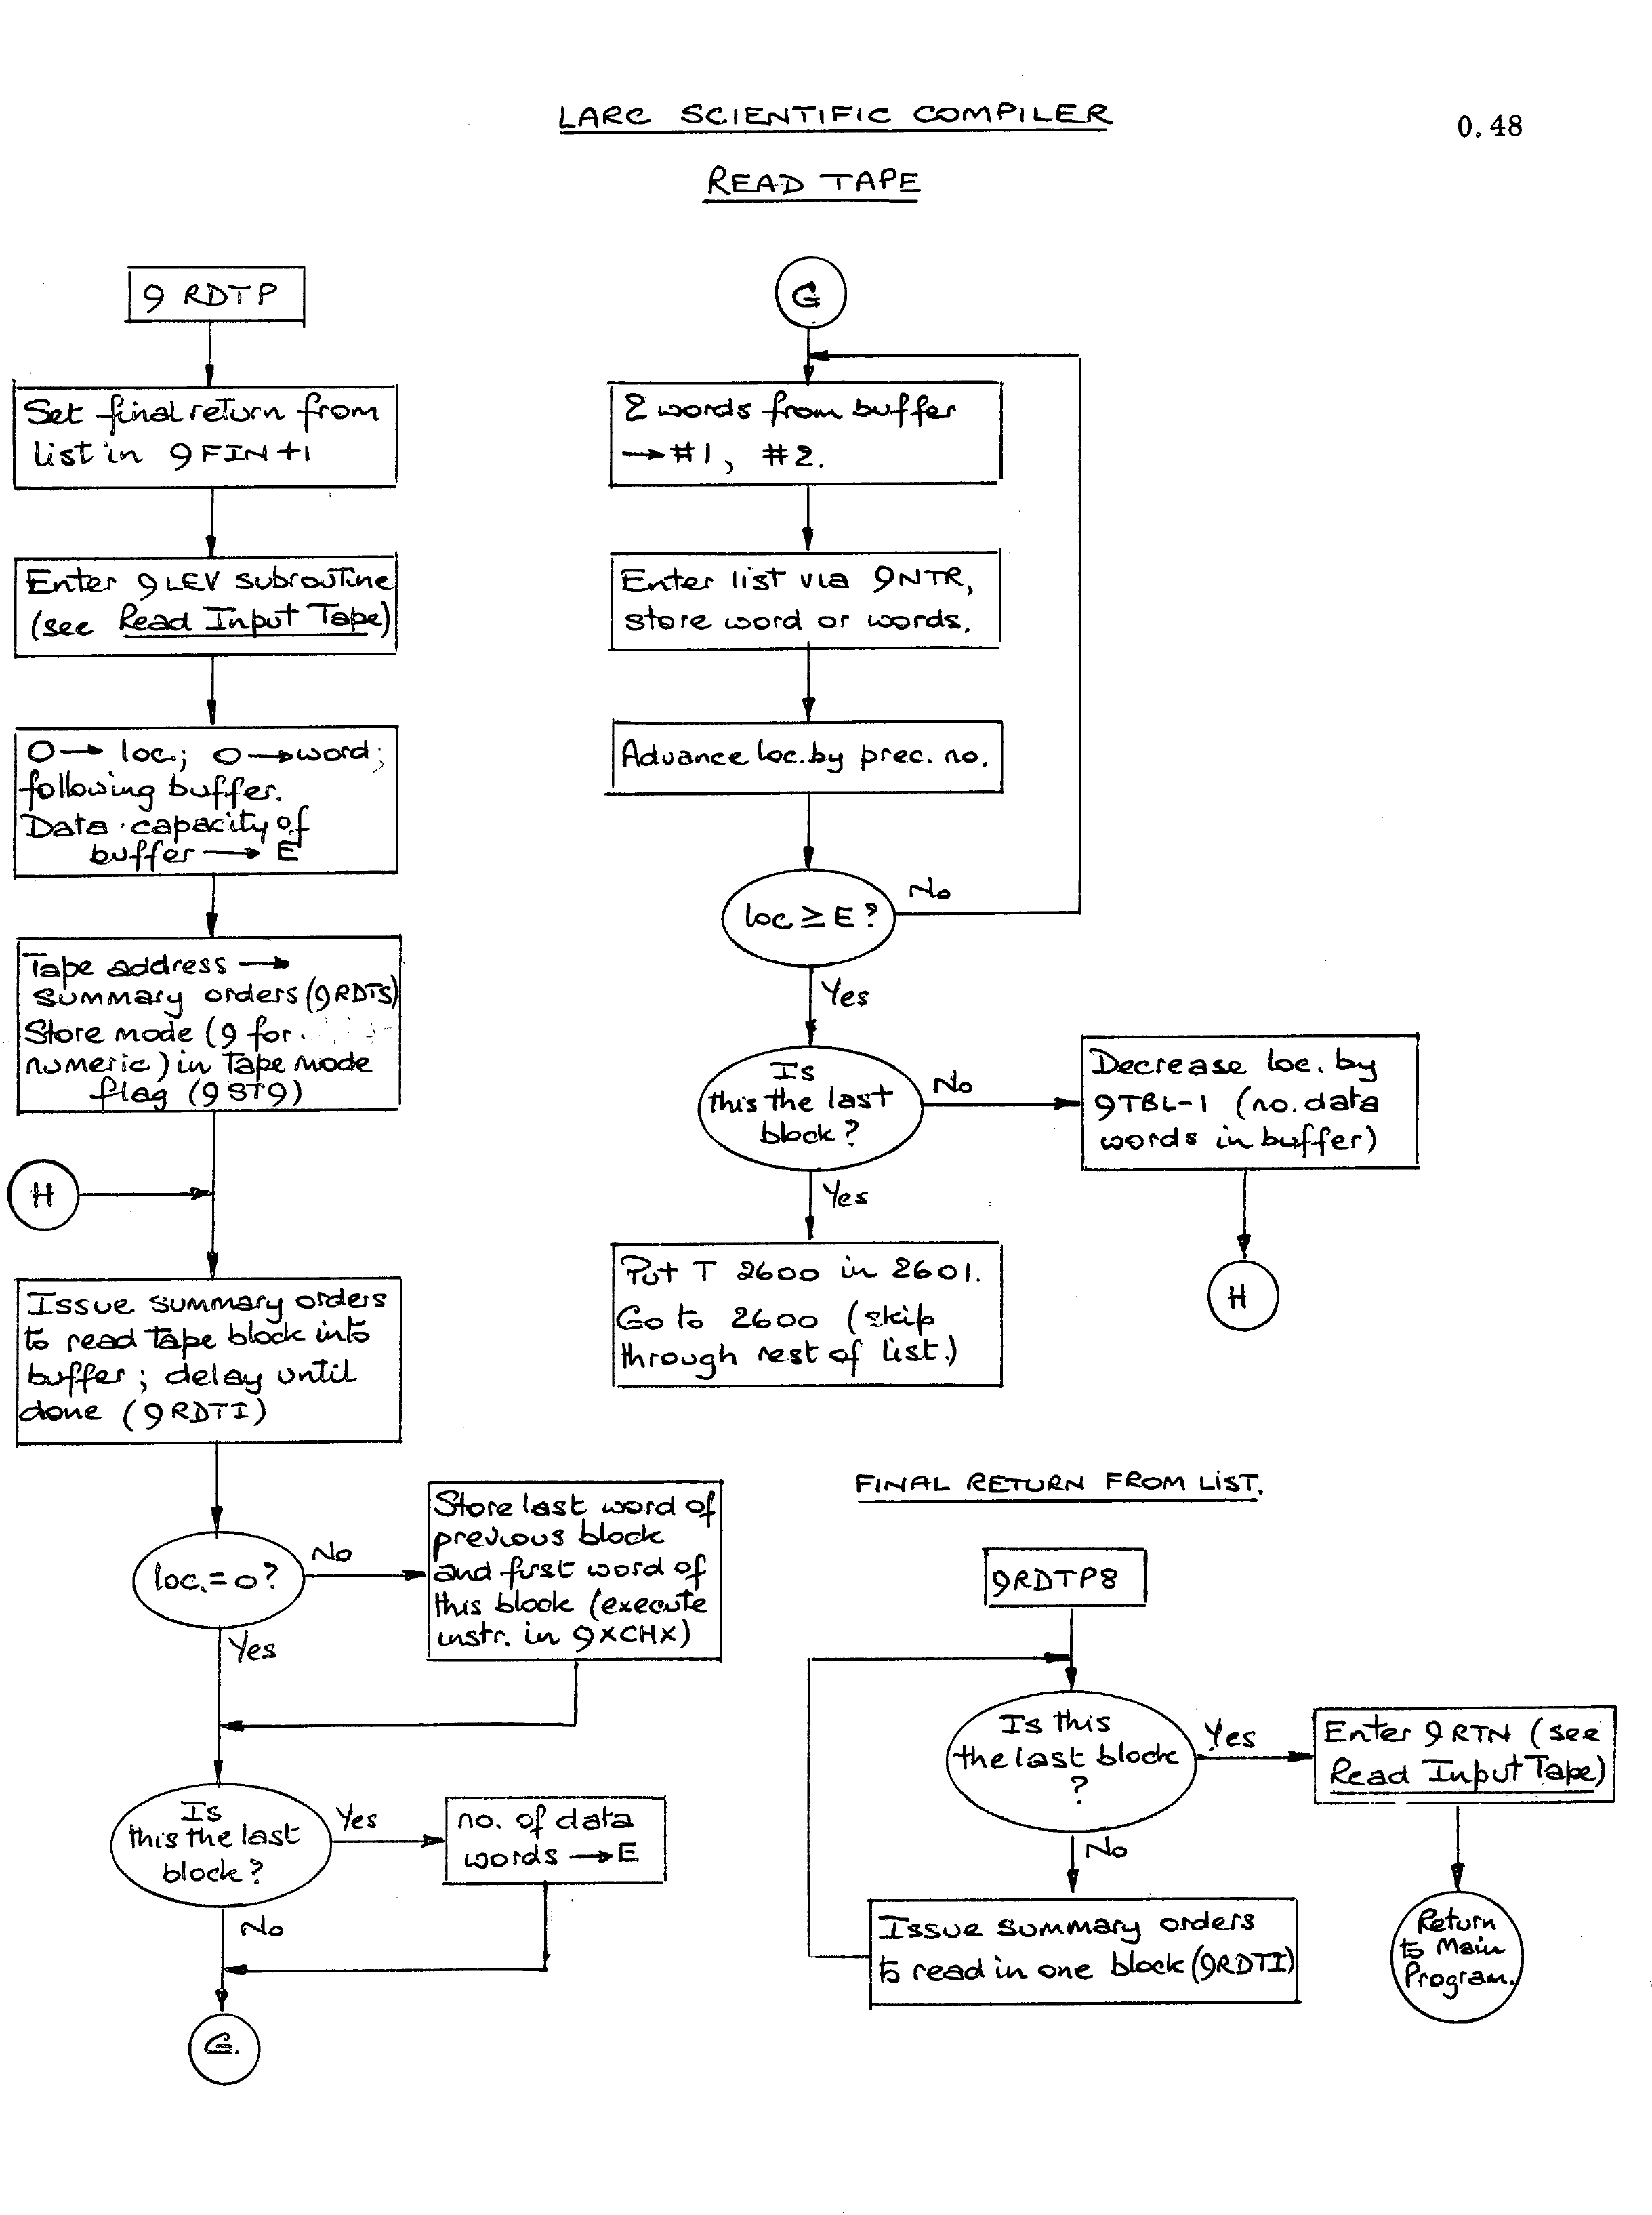 LARC SCIENTIFIC COMPILER
0.48
READ TAPE
9 RDTP
Set final return from
list in 9FIN+1
Enter 9LEV subroutine
(see Read Input Tape)
0→ loc.; 0→word;
following buffer.
Data capacity of
buffer → E
Tape address →
summary orders (9RDTS)
Store mode (9 for
numeric) in Tape mode
flag (9ST9)
H
Issue summary orders
to read tape block into
buffer; delay until
done (9RDTI)
loc.=0?
No
Yes
Store last word of
previous block
and first word of
this block (execute
instr. in 9XCHX)
Is
this the last
block?
Yes
No
no. of data
words → E
G.
G
2 words from buffer
→ #1, #2.
Enter list via 9NTR,
store word or words.
Advance loc. by prec. no.
loc ≥ E?
No
Yes
Is
this the last
block?
No
Yes
Decrease loc. by
9TBL-1 (no. data
words in buffer)
H
Put T 2600 in 2601.
Go to 2600 (skip
through rest of list.)
FINAL RETURN FROM LIST.
9RDTP8
Is this
the last block
?
Yes
No
Enter 9RTN (see
Read Input Tape)
Issue summary orders
to read in one block (9RDTI)
Return
to Main
Program.